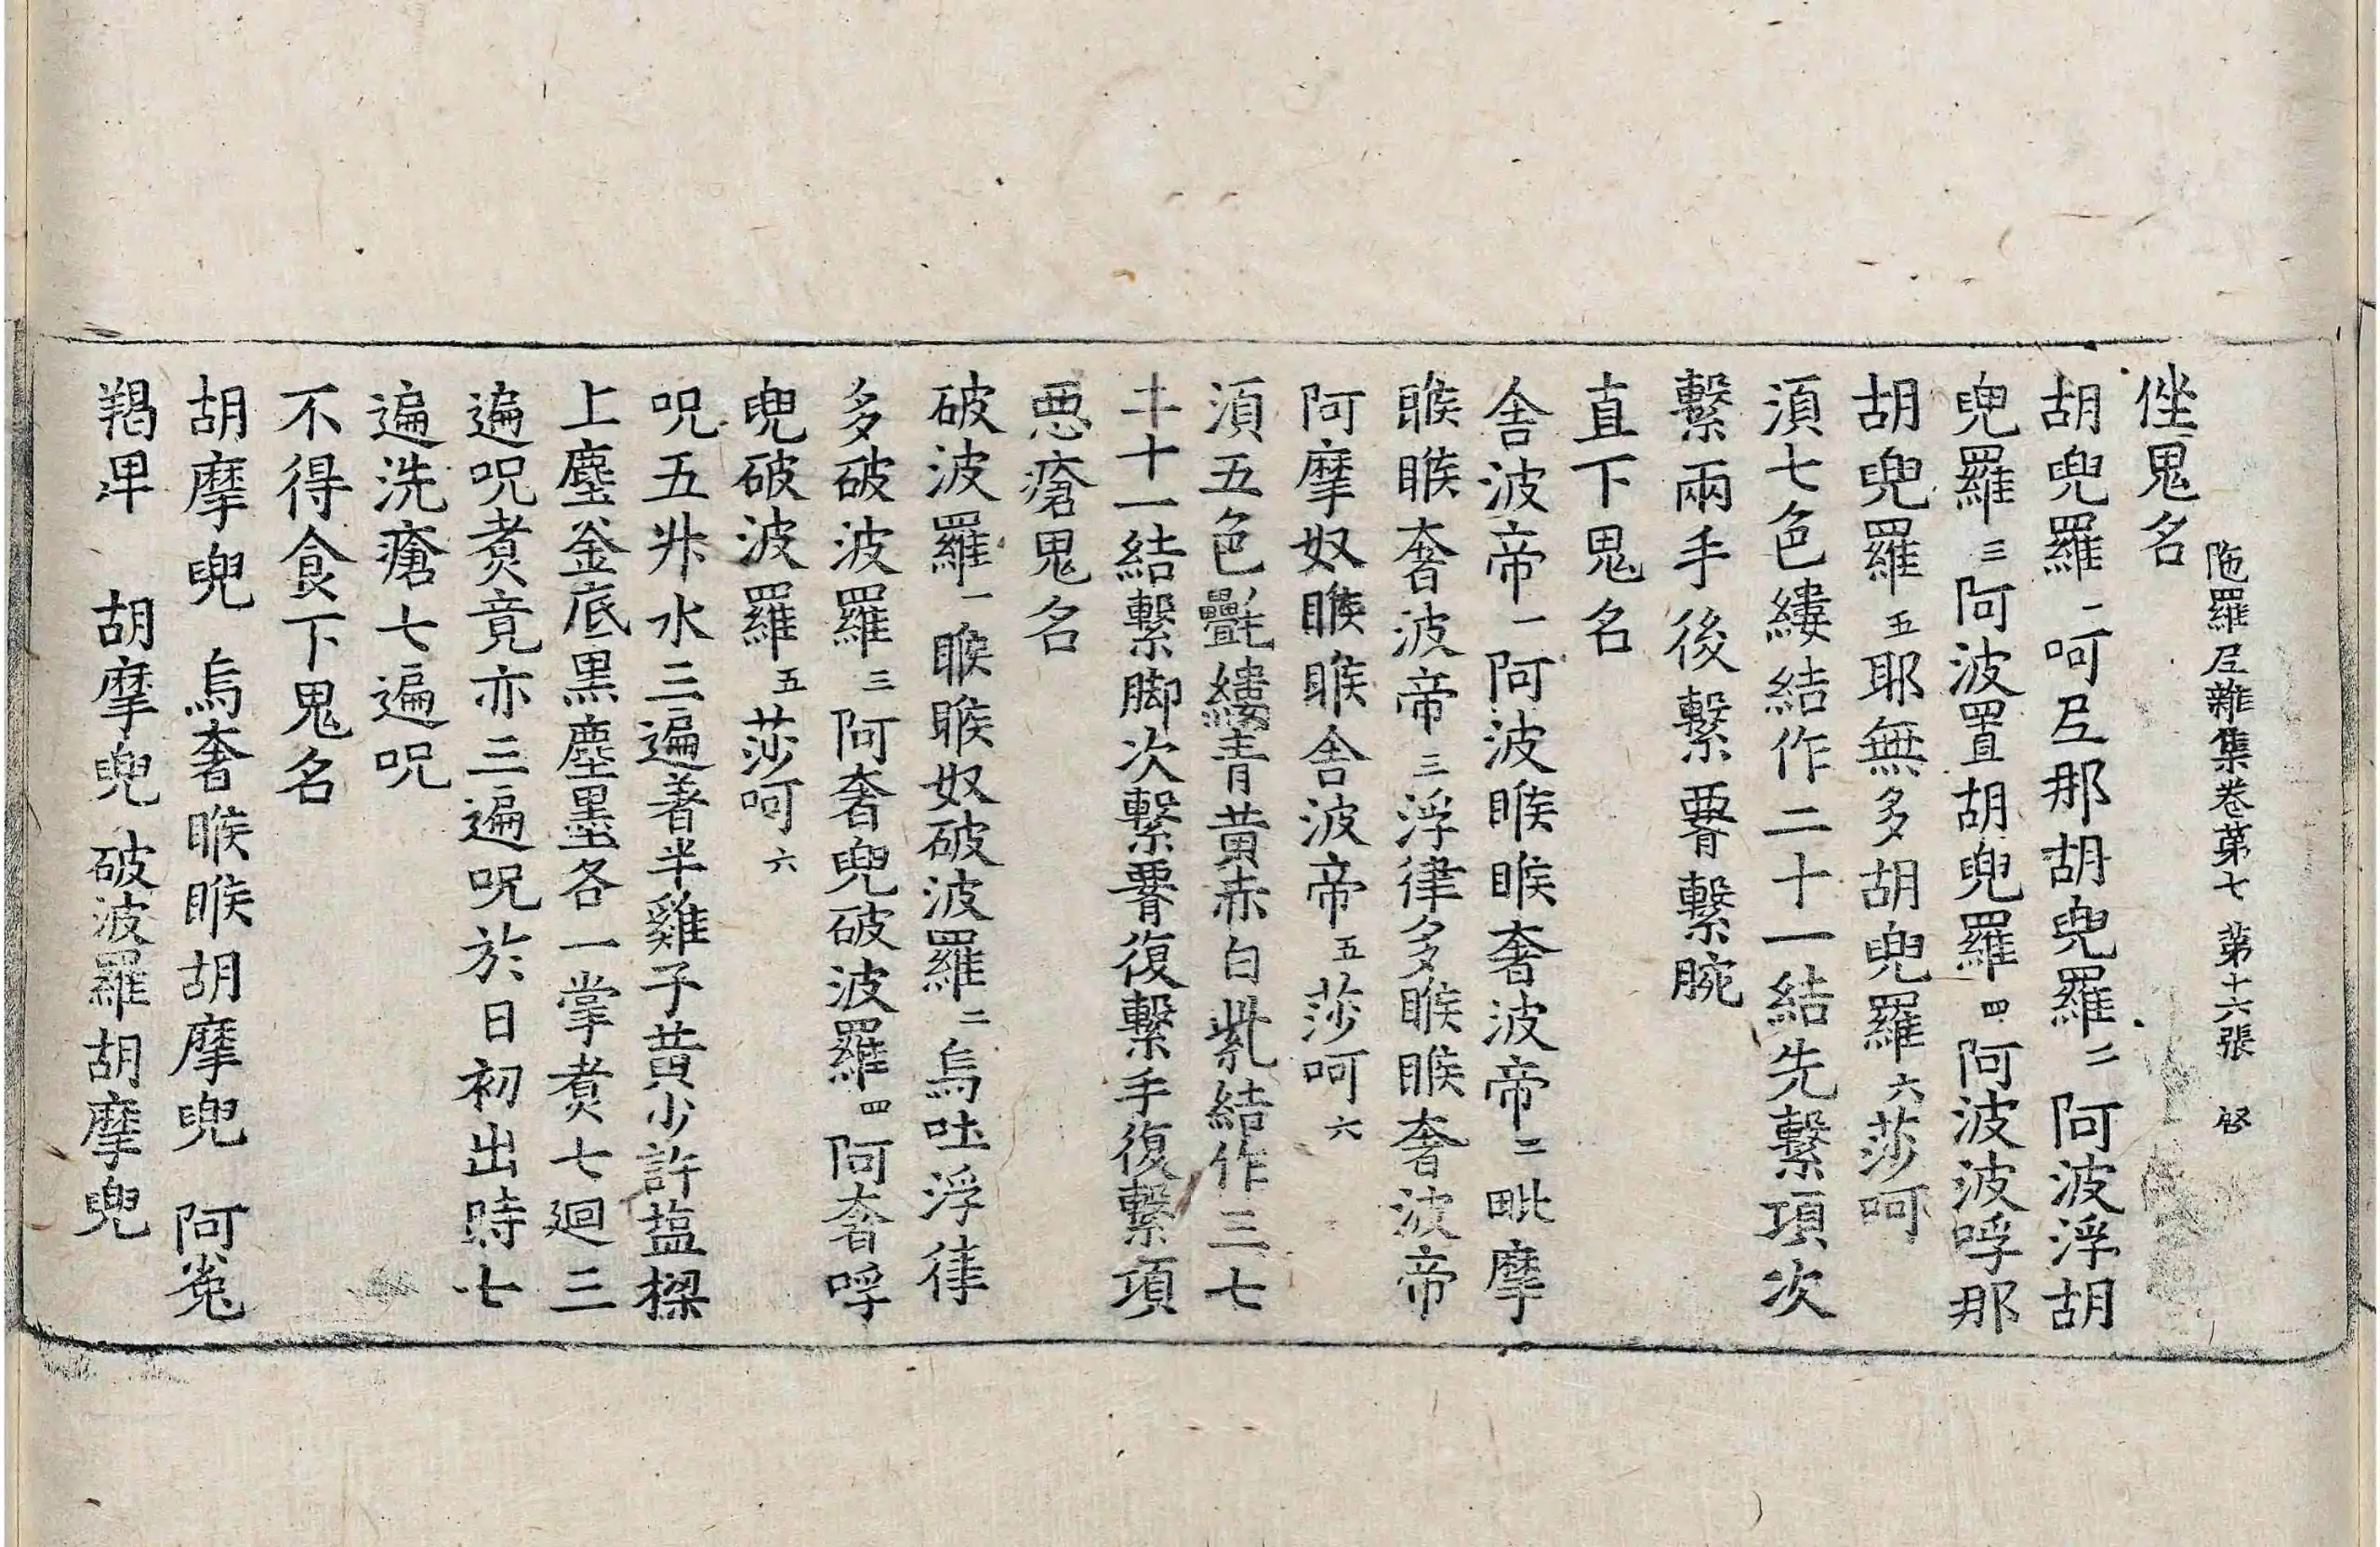 陁羅尼雜集卷苐七 苐十六張 啓
㘸鬼名
胡兜羅一呵𡰱那胡兜羅二阿波浮胡
兜羅三阿波置胡兜羅四阿波波呼那
胡兜羅五耶無多胡兜羅六莎呵
湏七色縷結作二十一結先繫項次
繫兩手後繫𦝫繫腕
直下鬼名
舍波帝一阿波睺睺奢波帝二毗摩
睺睺奢波帝三浮律多睺睺奢波帝
阿摩奴睺睺舍波帝五莎呵六
湏五色㲲縷青黃赤白紫結作三七
二十一結繫脚次繫𦝫復繫手復繫項
惡瘡鬼名
破波羅一睺睺奴破波羅二烏吐浮律
多破波羅三阿奢兜破波羅四阿奢呼
兜破波羅五莎呵六
呪五升水三遍著半雞子黃少許塩樑
上塵釜底黒塵墨各一掌煮七廻三
遍呪煮竟亦三遍呪於日初出時七
遍洗瘡七遍呪
不得食下鬼名
胡摩兜 烏奢睺睺胡摩兜 阿㝹
羯卑 胡摩兜 破波羅胡摩兜